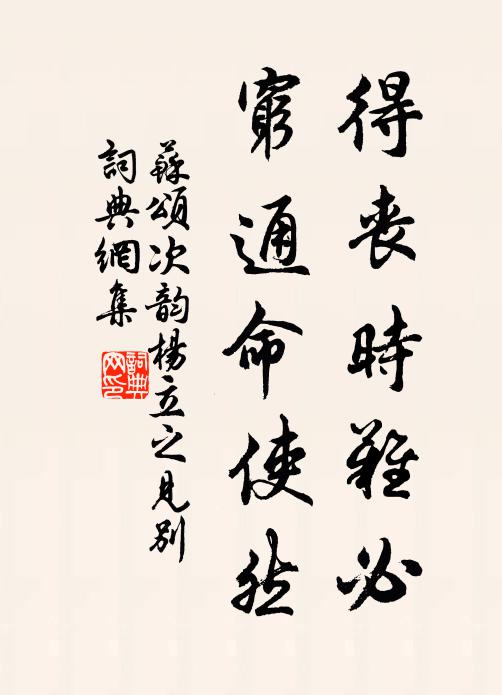 得喪時難必
窮通命使然
蘇頌次韵楊立之見別
詞典網集
詞典
网印